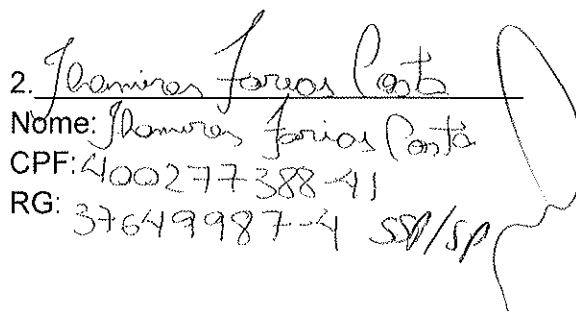 2. Thamiras Farias Costa
Nome: Thamiras Farias Costa
CPF: 400277388-41
RG: 37649987-4 SSP/SP